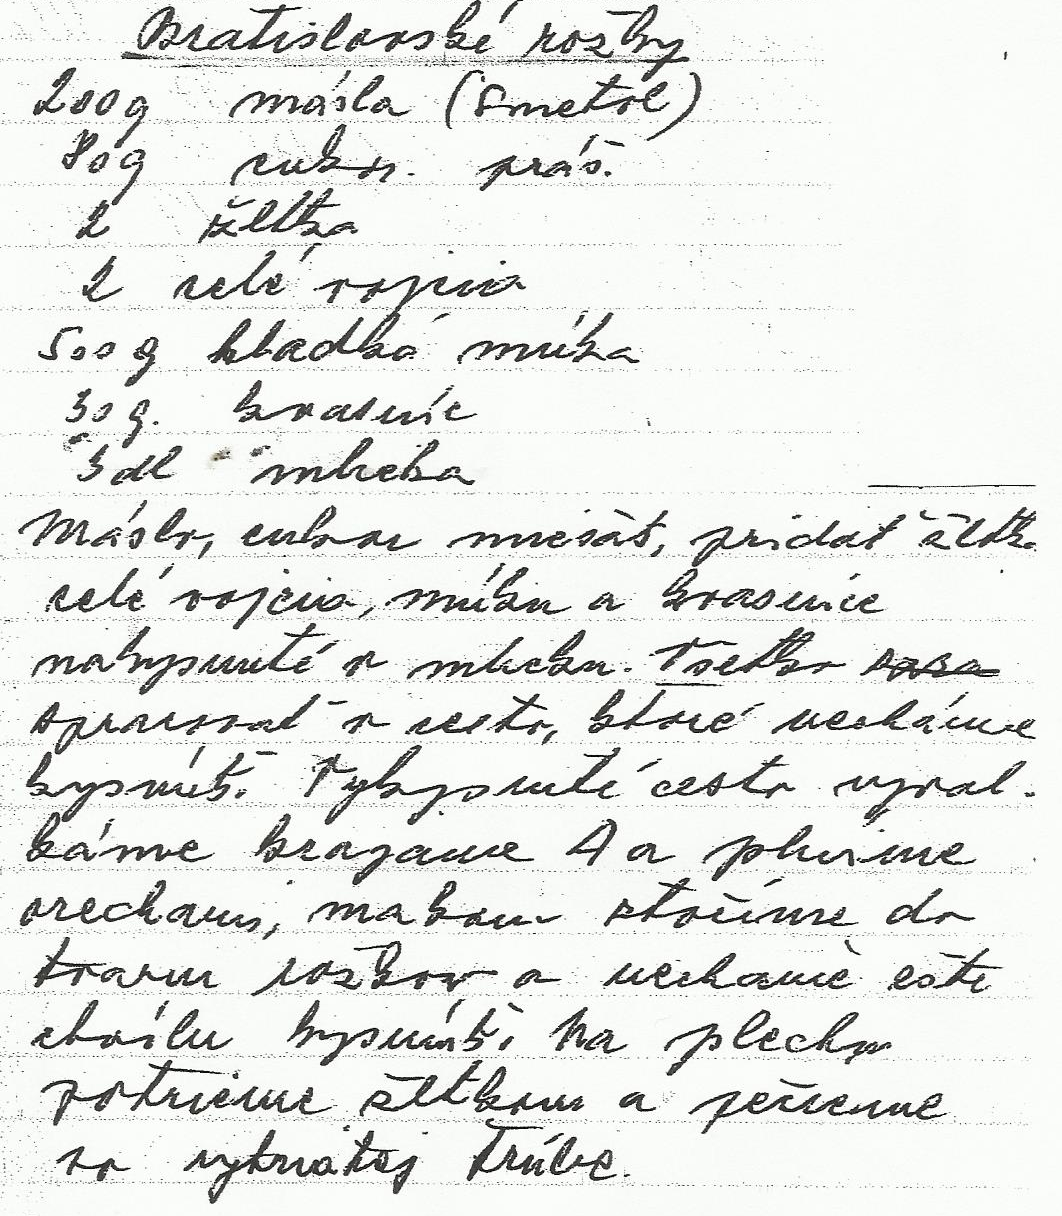 Bratislavské rožky
200g masla (Smetol)
80g cukor. práš.
2 žĺtka
2 celé vajcia
500g hladká múka
30g. kvasníc
3dl mlieka
Máslo, cukor miešať, pridať žĺtka
celé vajcia, múku a kvasnice
nakysnuté v mlieku. Všetko
spracovať v cesto, ktoré necháme
kysnúť. Vykysnuté cesto vyval-
káme krájame △ a plníme
orechami, makom stočíme do
tvaru rožkov a necháme ešte
chvíľu kysnúť. Na plechu
potrieme žĺtkom a pečieme
vo vyhriatej trúbe.